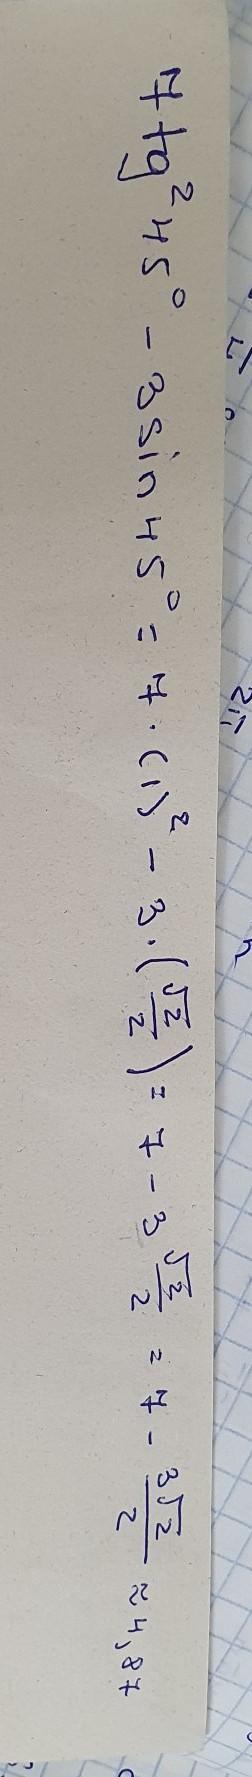 7 tg² 45° - 3 sin 45° = 7 · (1)² - 3 · (√2/2) = 7 - 3 √2/2 = 7 - 3√2/2 ≈ 4,87